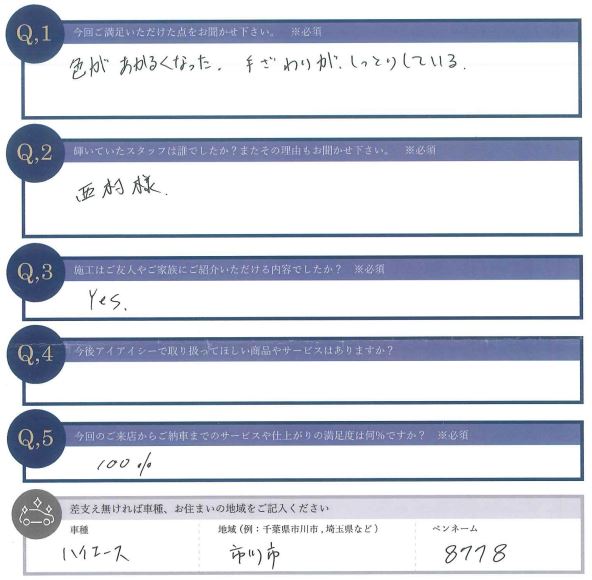 Q,1 今回ご満足いただけた点をお聞かせ下さい。 ※必須
色が あかるくなった。 手ざわりが、しっとりしている.
Q,2 輝いていたスタッフは誰でしたか？またその理由もお聞かせ下さい。 ※必須
西村様.
Q,3 施工はご友人やご家族にご紹介いただける内容でしたか？ ※必須
Yes.
Q,4 今後アイアイシーで取り扱ってほしい商品やサービスはありますか？
Q,5 今回のご来店からご納車までのサービスや仕上がりの満足度は何％ですか？ ※必須
100%
差支え無ければ車種、お住まいの地域をご記入ください
車種 地域 (例：千葉県市川市 , 埼玉県など) ペンネーム
ハイエース 市川市 8778